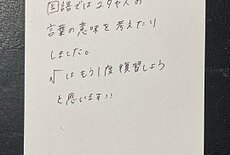 国語ではユタせんの
言葉の意味を考えたり
しました。
√はもう1度複習しよう
と思います!!